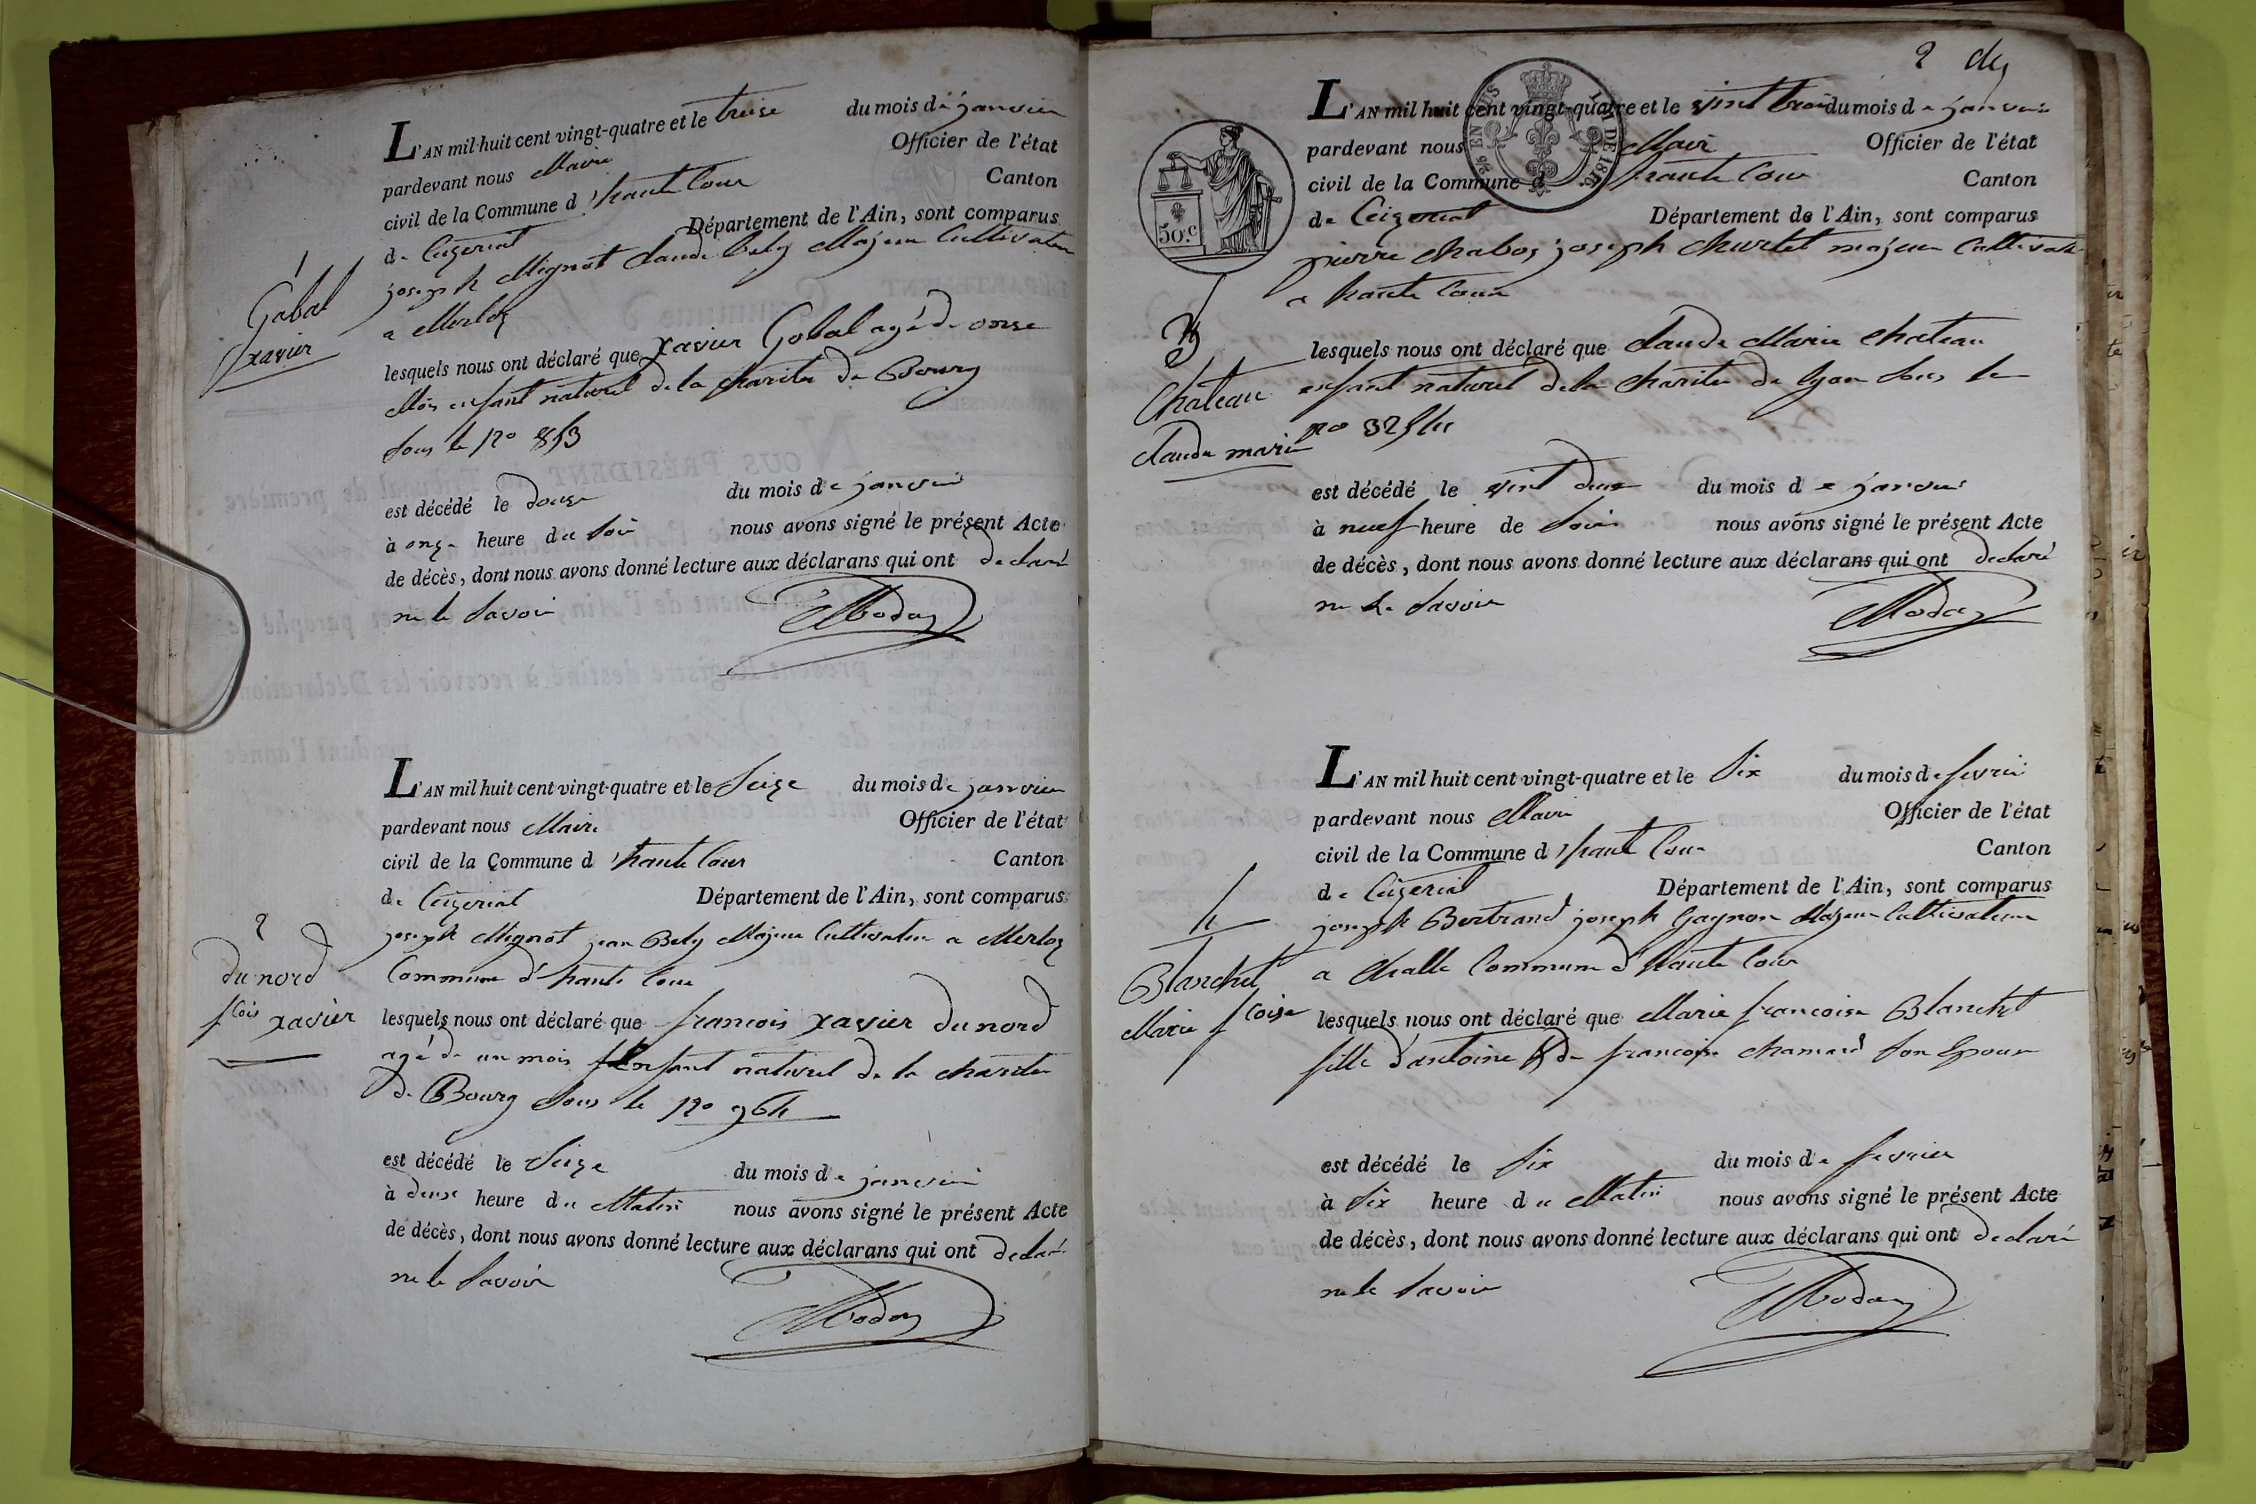 L'AN mil huit cent vingt-quatre et le treise du mois de janvier
pardevant nous Maire Officier de l'état
civil de la Commune d'haute Cour Canton
de Ceizeriat Département de l'Ain, sont comparus
joseph Mignot Claude bely Majeur Cultivateur
a Merloz
1
Gobal
xavier
lesquels nous ont déclaré que xavier Gobal agé de onse
Mois enfant naturel de la charite de Bourg
sous le No 853
est décédé le douse du mois de janvier
à onze heure du soir nous avons signé le présent Acte
de décès, dont nous avons donné lecture aux déclarans qui ont declaré
ne le savoir
L'AN mil huit cent vingt-quatre et le seize du mois de janvier
pardevant nous Maire Officier de l'état
civil de la Commune d'haute Cour Canton
de Ceizeriat Département de l'Ain, sont comparus
joseph Mignot jean Bely Majeur Cultivateur a Merloz
Commune d'haute Cour
2
du nord
fcois xavier
lesquels nous ont déclaré que francois xavier du nord
agé de un mois enfant naturel de la charite
de Bourg sous le No 964
est décédé le seize du mois de janvier
à deux heure du Matin nous avons signé le présent Acte
de décès, dont nous avons donné lecture aux déclarans qui ont declaré
ne le savoir
2
L'AN mil huit cent vingt-quatre et le vint trois du mois de janvier
pardevant nous Maire Officier de l'état
civil de la Commune d haute Cour Canton
de Ceizeriat Département de l'Ain, sont comparus
50.c
pierre chaboz joseph churlet majeur Cultivateur
a haute Cour
3
Chateau
Claude marie
lesquels nous ont déclaré que Claude Marie Chateau
enfant naturel de la charite de lyon sous le
no
est décédé le vint deux du mois de janvier
à neuf heure de soir nous avons signé le présent Acte
de décès, dont nous avons donné lecture aux déclarans qui ont declaré
ne le savoir
L'AN mil huit cent vingt-quatre et le six du mois de fevrier
pardevant nous Maire Officier de l'état
civil de la Commune d'haute Cour Canton
de Ceizeriat Département de l'Ain, sont comparus
joseph Bertrand joseph Gagnon Majeur Cultivateur
a challe Commune d'haute Cour
4
Blanchet
Marie fcoise
lesquels nous ont déclaré que Marie francoise Blanchet
fille d'antoine & de francoise chamard son Epouse
est décédé le six du mois de fevrier
à six heure du Matin nous avons signé le présent Acte
de décès, dont nous avons donné lecture aux déclarans qui ont declaré
ne le savoir